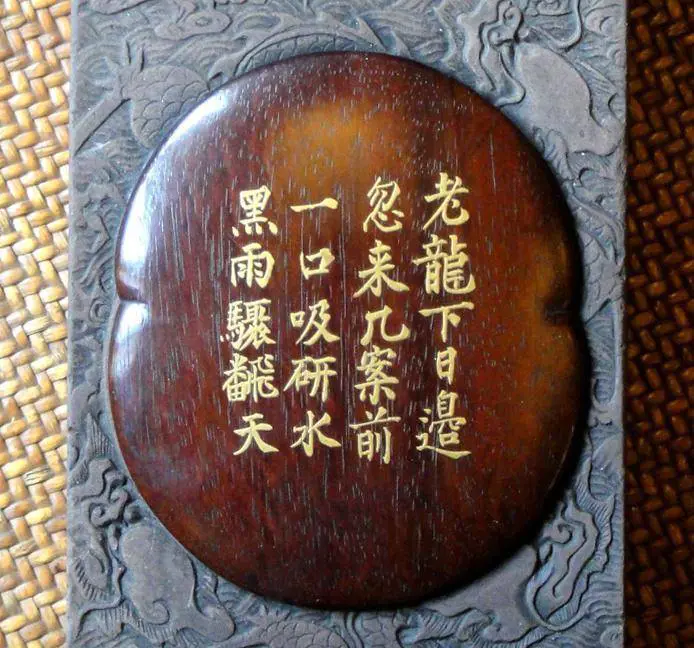 老龍下日邉
忽来几案前
一口吸研水
黑雨驟飜天